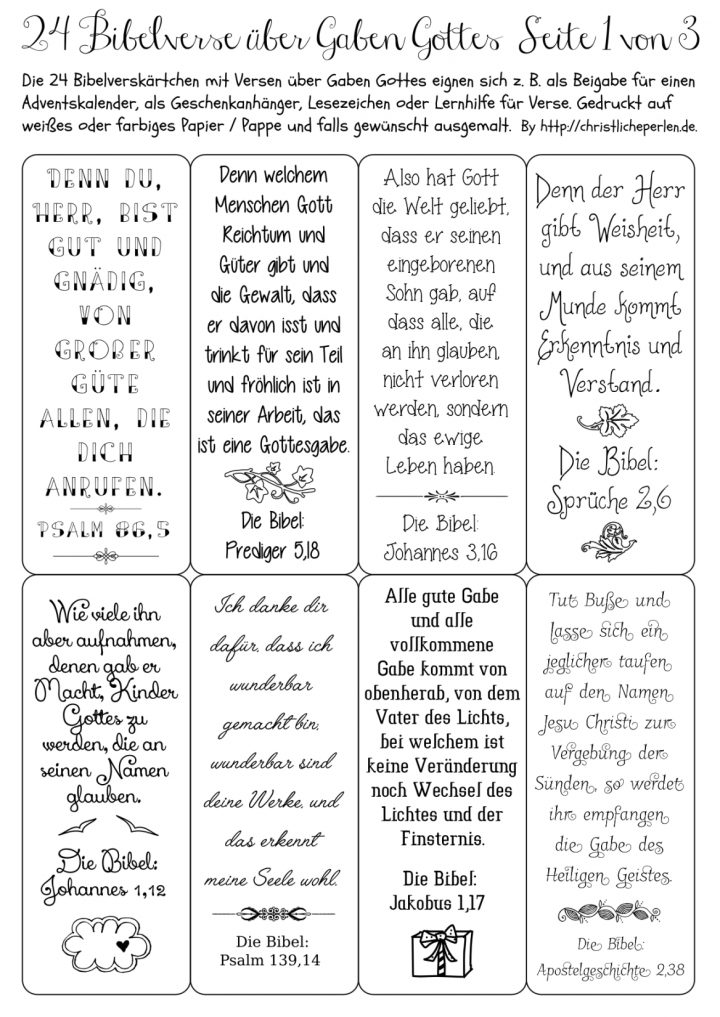 24 Bibelverse über Gaben Gottes Seite 1 von 3
Die 24 Bibelverskärtchen mit Versen über Gaben Gottes eignen sich z. B. als Beigabe für einen
Adventskalender, als Geschenkanhänger, Lesezeichen oder Lernhilfe für Verse. Gedruckt auf
weißes oder farbiges Papier / Pappe und falls gewünscht ausgemalt. By http://christlicheperlen.de.
DENN DU,
HERR, BIST
GUT UND
GNÄDIG,
VON
GROßER
GÜTE
ALLEN, DIE
DICH
ANRUFEN.
PSALM 86,5
Denn welchem
Menschen Gott
Reichtum und
Güter gibt und
die Gewalt, dass
er davon isst und
trinkt für sein Teil
und fröhlich ist in
seiner Arbeit, das
ist eine Gottesgabe.
Die Bibel:
Prediger 5,18
Also hat Gott
die Welt geliebt,
dass er seinen
eingeborenen
Sohn gab, auf
dass alle, die
an ihn glauben,
nicht verloren
werden, sondern
das ewige
Leben haben.
Die Bibel:
Johannes 3,16
Denn der Herr
gibt Weisheit,
und aus seinem
Munde kommt
Erkenntnis und
Verstand.
Die Bibel:
Sprüche 2,6
Wie viele ihn
aber aufnahmen,
denen gab er
Macht, Kinder
Gottes zu
werden, die an
seinen Namen
glauben.
Die Bibel:
Johannes 1,12
Ich danke dir
dafür, dass ich
wunderbar
gemacht bin,
wunderbar sind
deine Werke, und
das erkennt
meine Seele wohl.
Die Bibel:
Psalm 139,14
Alle gute Gabe
und alle
vollkommene
Gabe kommt von
obenherab, von dem
Vater des Lichts,
bei welchem ist
keine Veränderung
noch Wechsel des
Lichtes und der
Finsternis.
Die Bibel:
Jakobus 1,17
Tut Buße und
lasse sich ein
jeglicher taufen
auf den Namen
Jesu Christi zur
Vergebung der
Sünden, so werdet
ihr empfangen
die Gabe des
Heiligen Geistes.
Die Bibel:
Apostelgeschichte 2,38